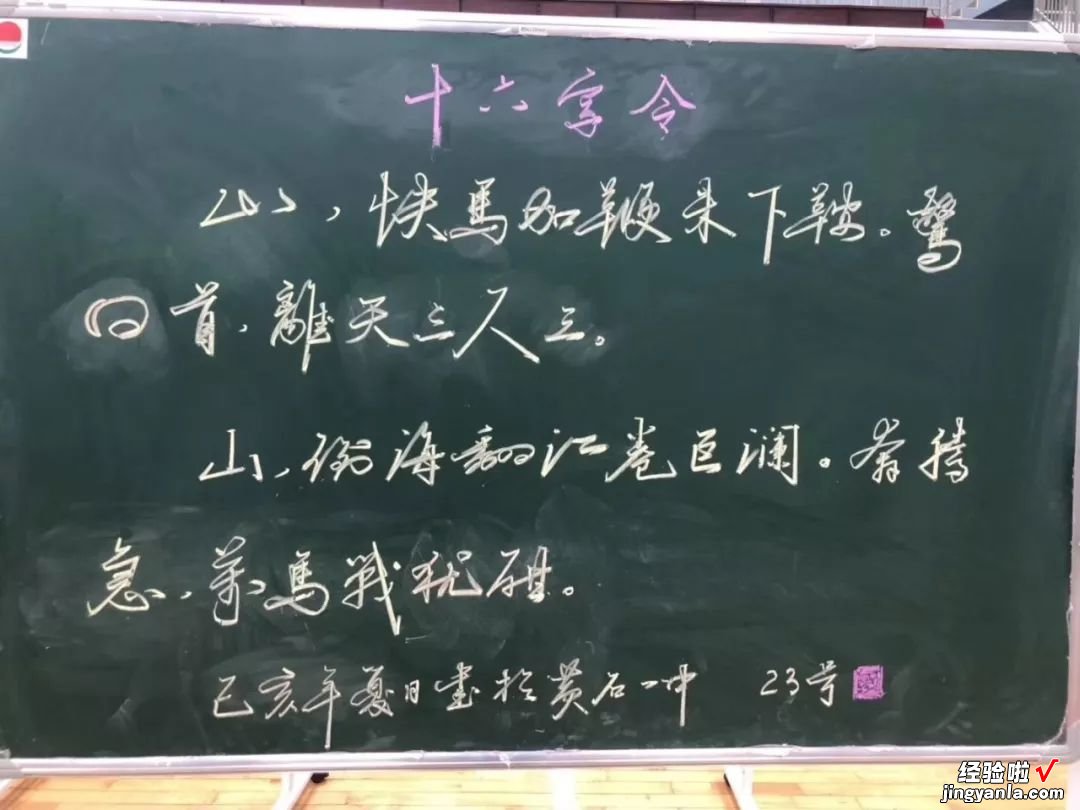 十六字令
山，快馬加鞭未下鞍。驚
回首，離天三尺三。
山，倒海翻江卷巨澜。奔腾
急，萬馬戰犹酣。
己亥年夏日書於黄石一中 23号
经验啦√
jingyanla.com